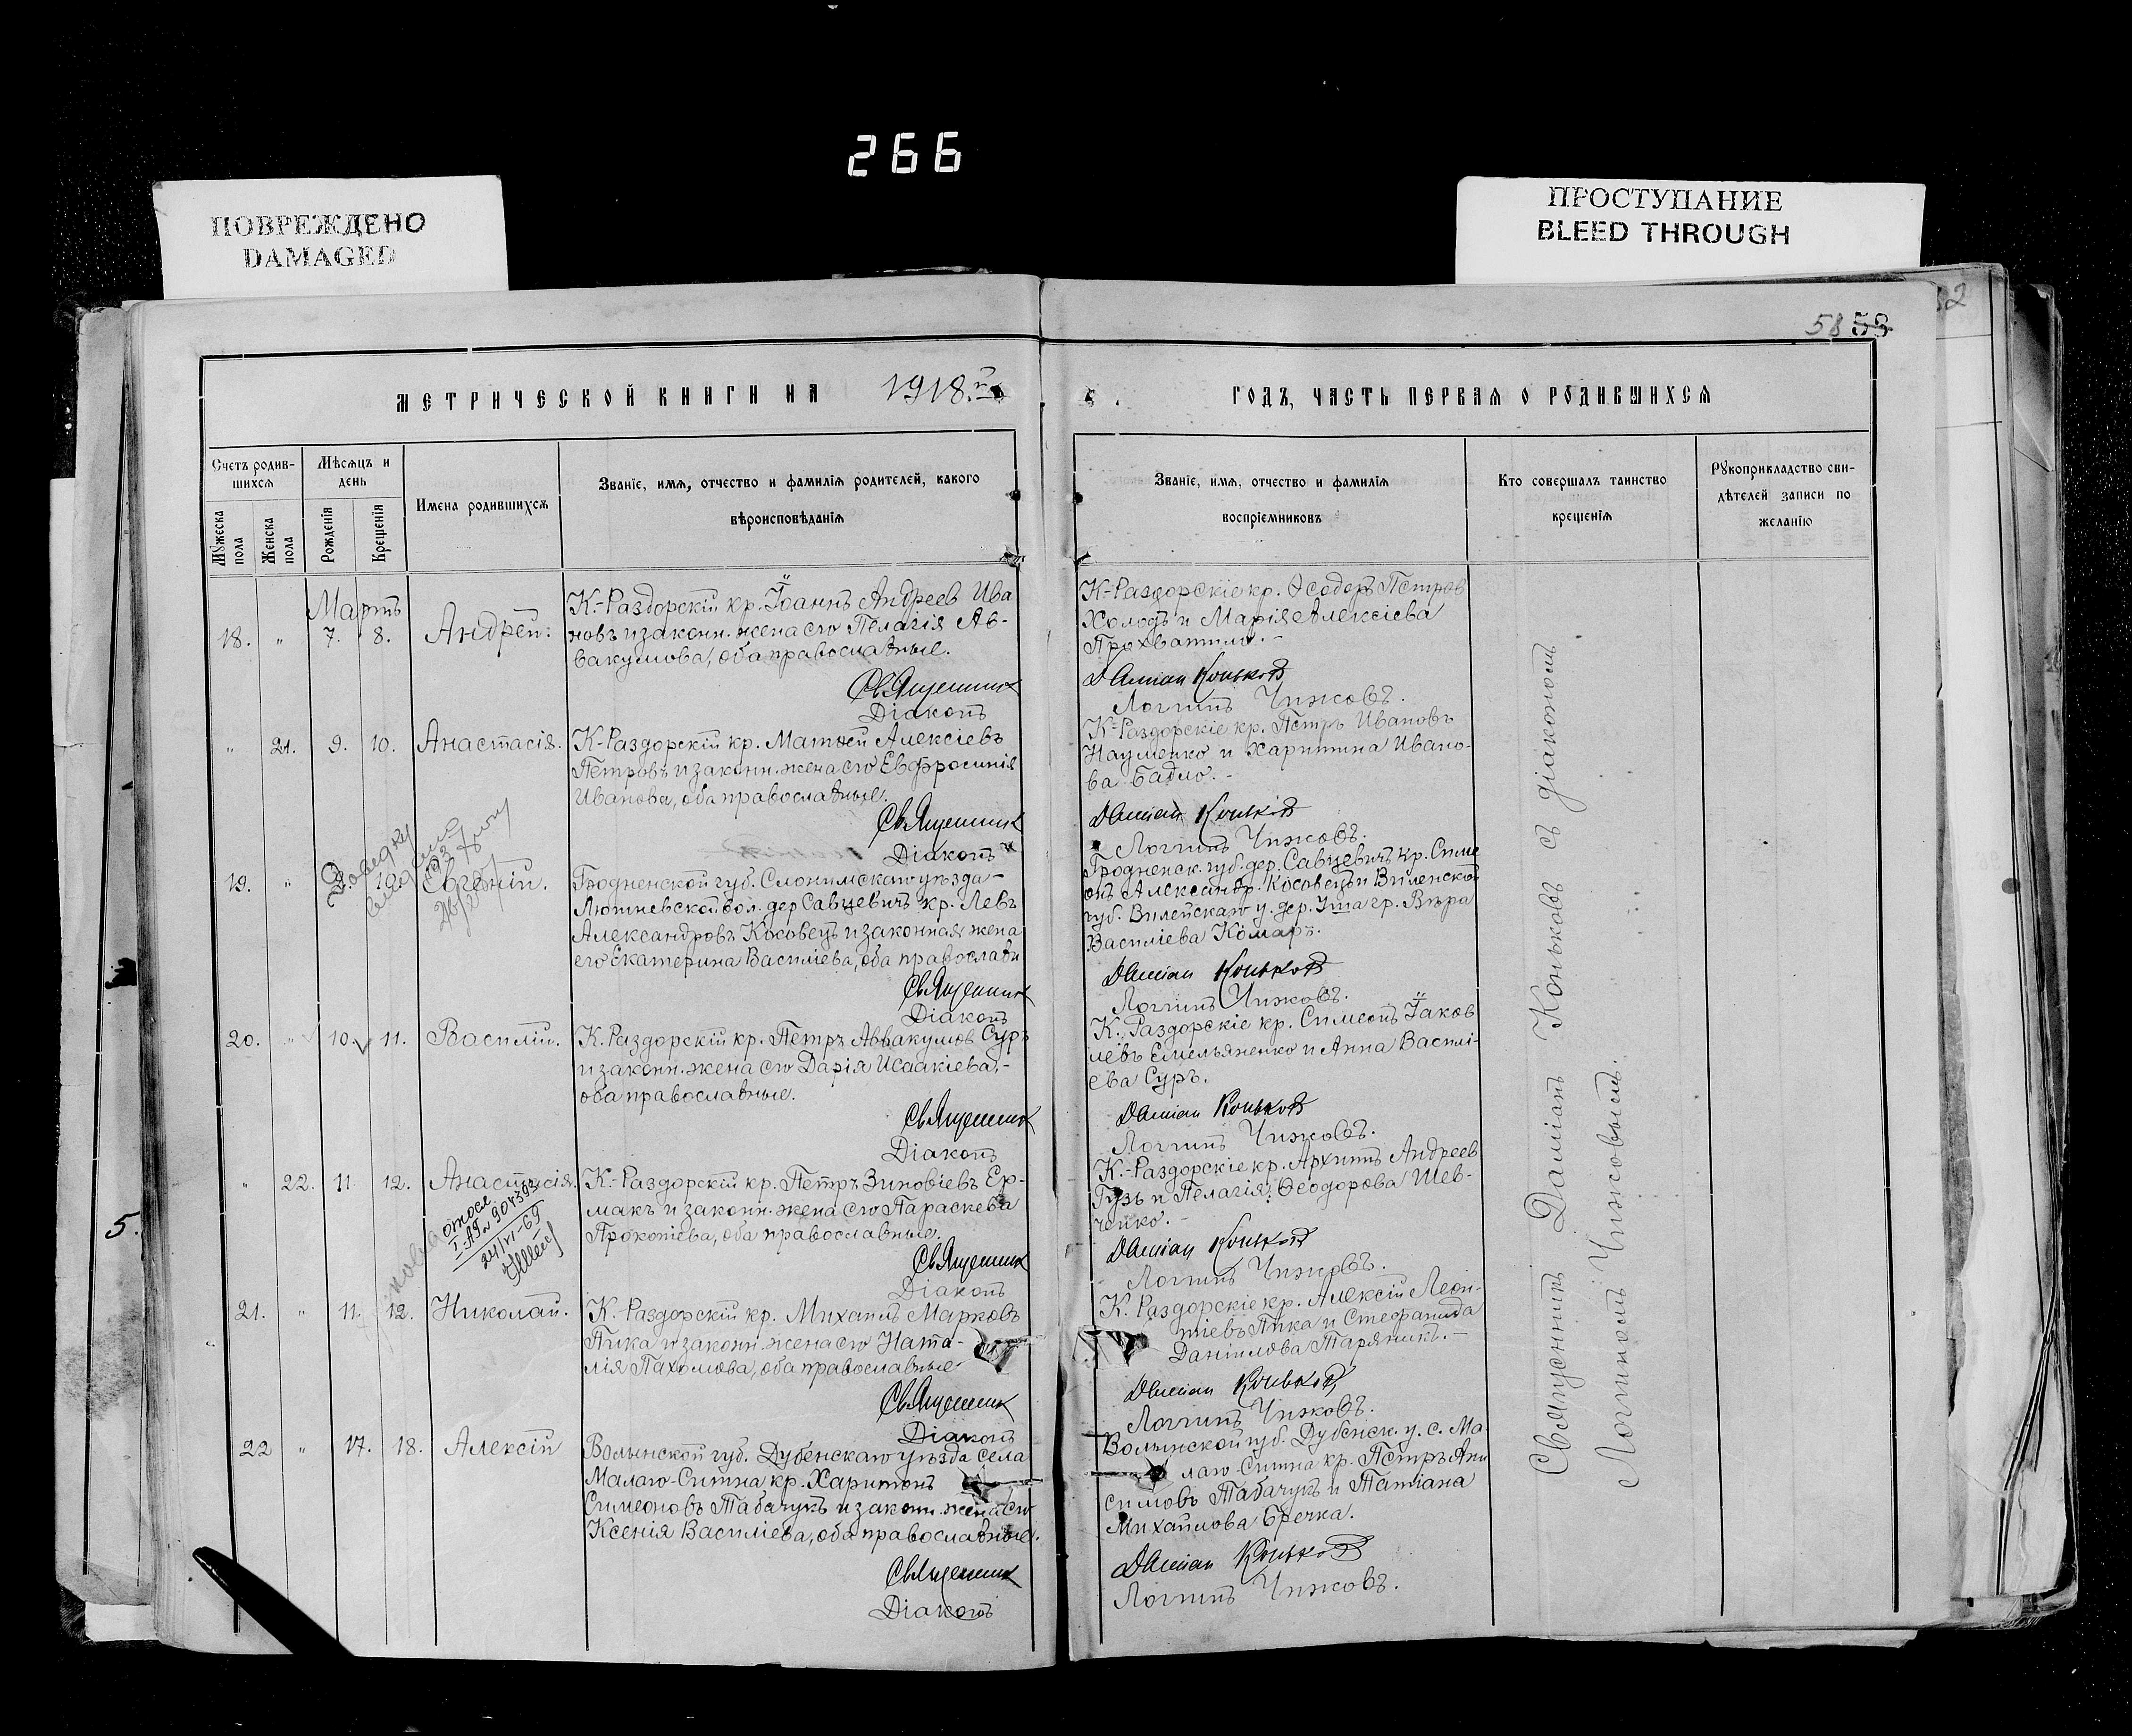 266
ПОВРЕЖДЕНО
DAMAGED
ПРОСТУПАНИЕ
BLEED THROUGH
58 58
МЕТРИЧЕСКОЙ КНИГИ НА 1918.й
ГОДЪ, ЧАСТЬ ПЕРВАЯ О РОДИВШИХСЯ
Счетъ родившихся
Мужеска пола
Женска пола
Мѣсяцъ и день
Рожденія
Крещенія
Имена родившихся
Званіе, имя, отчество и фамилія родителей, какого
вѣроисповѣданія
Званіе, имя, отчество и фамилія
воспріемниковъ
Кто совершалъ таинство
крещенія
Рукоприкладство сви-
дѣтелей записи по
желанію
Мартъ
18. " 7. 8. Андрей.
К.-Раздорскій кр. Іоаннъ Андреев Ива
новъ и законн. жена его Пелагія Ав-
вакумова, оба православные.
Священник
Діаконъ
К.-Раздорскіе кр. Ѳеодоръ Петров
Холодъ и Марія Алексіева
Прохватило.-
Даміан Коньков
Логгинъ Чижовъ.
" 21. 9. 10. Анастасія.
К-Раздорскій кр. Матѳей Алексіевъ
Петровъ и законн. жена его Евфросинія
Иванова, оба православные.
Священник
Діаконъ
К-Раздорскіе кр. Петръ Ивановъ
Науменко и Харитина Ивано-
ва Бадло.-
Даміан Коньков
Логгинъ Чижовъ.
19. " 10. Евгеній.
Гродненской губ. Слонимскаго уѣзда-
Лютневской вол. дер Савцевичъ кр. Левъ
Александровъ Косовецъ и законная жена
его Екатерина Василіева, оба православн
Священник
Діаконъ
Гродненск. губ. дер. Савцевичъ кр. Симе
онъ Александр. Косовецъ и Виленской
губ. Вилейскаго у. дер. Уша гр. Вѣра
Василіева Комаръ.
Даміан Коньков
Логгинъ Чижовъ.
20. " 10. 11. Василій.
К. Раздорскій кр. Петръ Аввакумов Суръ
и законн. жена его Дарія Исаакіева,-
оба православные.
Священник
Діаконъ
К. Раздорскіе кр. Симеонъ Іаков
левъ Емельяненко и Анна Василі-
ева Суръ.
Даміан Коньков
Логгинъ Чижовъ.
" 22. 11. 12. Анастасія.
24/VI-69
К.-Раздорскій кр. Петръ Зиновіевъ Ер-
макъ и законн. жена его Параскева
Прокопіева, оба православные.
Священник
Діаконъ
К.-Раздорскіе кр. Архипъ Андреев
Гузь и Пелагія Ѳеодорова Шев-
ченко.-
Даміан Коньков
Логгинъ Чижовъ.
21. " 11. 12. Николай.
К-Раздорскій кр. Михаилъ Марковъ
Пика и законн. жена его Ната-
лія Пахомова, оба православные
Священник
Діаконъ
К. Раздорскіе кр. Алексій Леон-
тіевъ Пика и Стефанида
Даніилова Таряникъ.-
Даміан Коньков
Логгинъ Чижовъ.
22 " 17. 18. Алексій
Волынской губ. Дубенскаго уѣзда села
Малаго-Ситна кр. Харитонъ
Симеоновъ Табачукъ и законн. жена его
Ксенія Василіева, оба православные.
Священник
Діаконъ
Волынской губ. Дубенск. у. с. Ма
лаго-Ситна кр. Петръ Ани
симовъ Табачукъ и Татіана
Михайлова Бречка.
Даміан Коньков
Логгинъ Чижовъ.
Священникъ Даміанъ Коньковъ съ діакономъ
Логгиномъ Чижовымъ.
5.